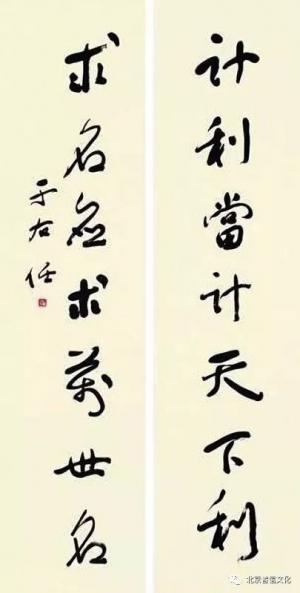 計利當計天下利
求名應求萬世名
于右任
北京皆信文化